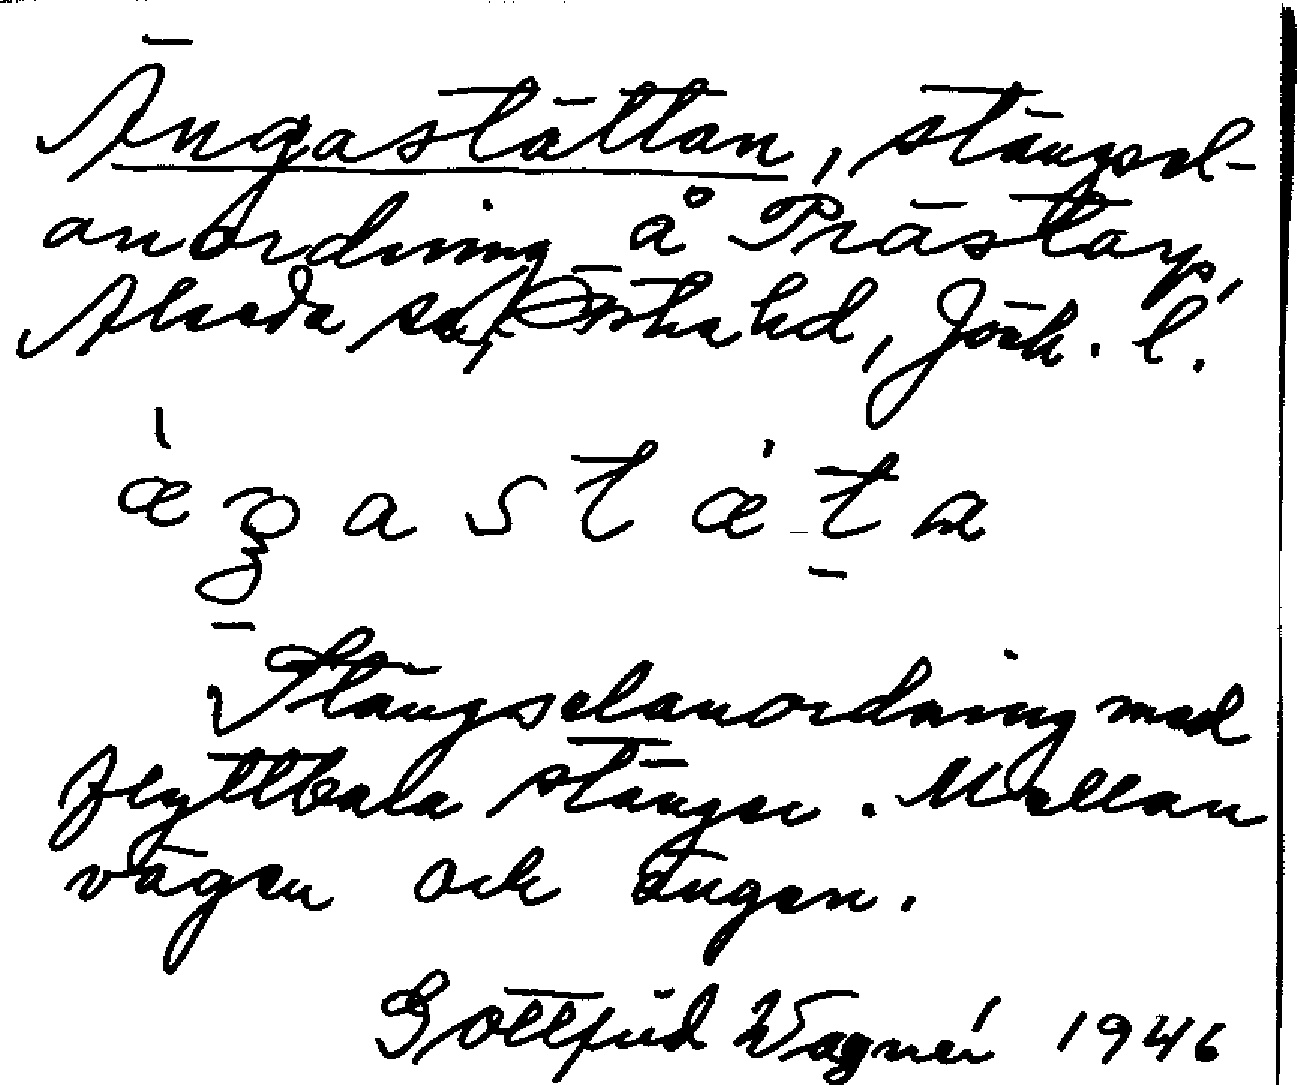 Ängastättan, stängsel-
anordning å Prästarp,
Alseda sn, Östra hd, Jönk. l.
ǽgastǽta
Stängselanordning med
flyttbara stänger. Mellan
vägen och ängen.
Gottfrid Wagnér 1946